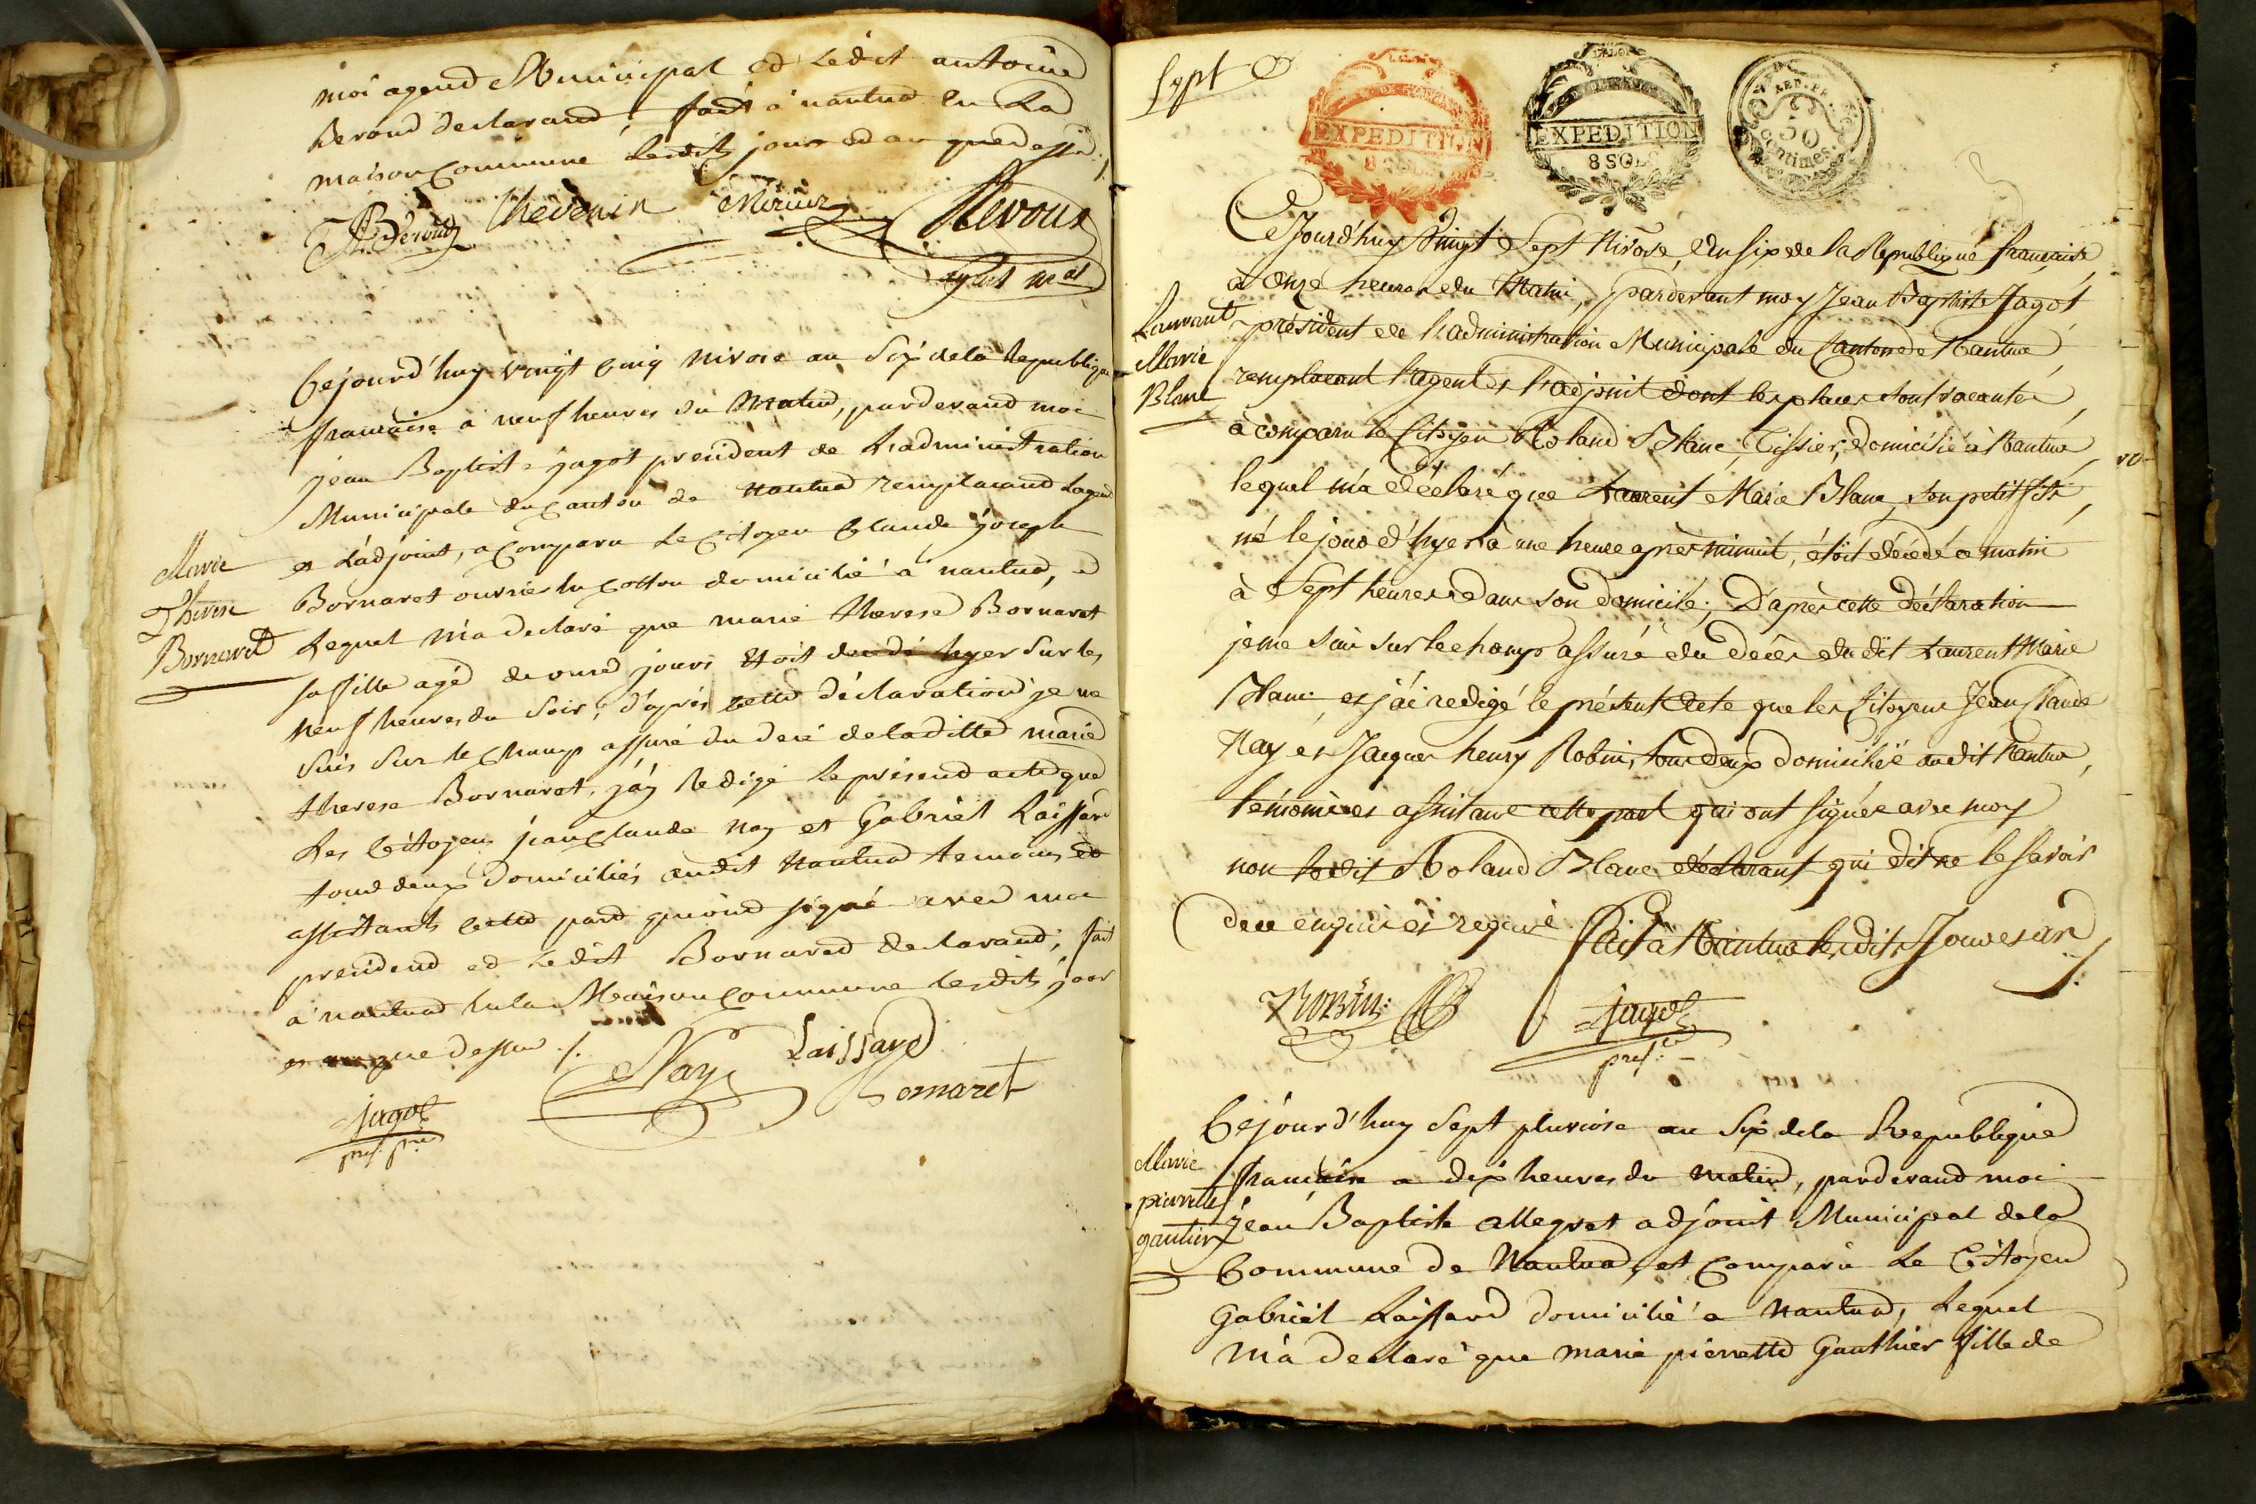 moi agend Municipal ed ledit antoine
Beroud declarand, fait à nantua en La
maison Commune lesdits jour ed an que dessus ./.
Béroud thevenin Mercier Nevoux
agent mal
Cejourd'huy vingt cinq nivose an Six de la Republique
francaise à neuf heures du Matin, pardevand moi
jean Baptiste jagot president de L'administration
Municipale du Canton de nantua remplacand Lagend
et L'adjoint, a Comparu Le Citoyen Claude joseph
Marie
Therese
Bornaret
Bornaret ouvrier en Cotton domicilié à nantua,
Lequel m'a declaré que marie therese Bornaret
sa fille agé de jours étoit hyer Sur les
neuf heures du Soir, d'après cette déclaration je me
Suis Sur le Champ assuré du decé de laditte marie
therese Bornaret, j'ay Redigé Le présend acte que
Les Citoyens jean Claude nay et Gabriel Laissard
tous deux domiciliés audit nantua temoins
assistants cette pard qui ond signé avec moi
president ed ledit Bornared declarand, fait
à nantua en la Maison Commune lesdits jour
et an que dessus ./.
Nay Laissard
Bornaret
jagot
Sept
EXPEDITION
8 SOLS
EXPEDITION
8 SOLS
REP. FR.
50
Centimes
Cejourd'huy Vingt Sept Nivose, an six de la Republique française
à Onze heures du Matin, pardevant moy Jean Baptiste Jagot
Laurant
Marie
Blanc
président de l'administration Municipale du Canton de Nantua,
remplacant l'agent et l'adjoint dont les places sont vacantes,
à comparu le Citoyen Roland Blanc, Tissier, domicilié à Nantua,
lequel m'a déclaré que Laurent Marie Blanc, son petit fils,
né le jour d'hyer à une heure après minuit, étoit décédé ce matin
à Sept heures dans son domicile; D'après cette déclaration
je me suis sur le champ assuré du décès du dit Laurent Marie
Blanc, et j'ai redigé le présent acte que les Citoyens Jean Claude
Nay et Jacques henry Robin, tous deux domiciliés audit Nantua,
témoins assistans cette part qui ont signés avec moy
non ledit Roland Blanc déclarant qui dit ne le savoir
de ce enquis et requis Fait à Nantua lesdits Jour et an ./.
ROBIN jagot
Cejourd'huy Sept pluviose an Six de la Republique
Marie
pierrette
gautier
francaise a dix heures du matin, pardevand moi
jean Baptiste allegret adjoint Municipal de la
Commune de Nantua, et Comparu Le Citoyen
Gabriel Laissard domicilié a nantua, Lequel
m'a declaré que marie pierrette Gauthier fille de